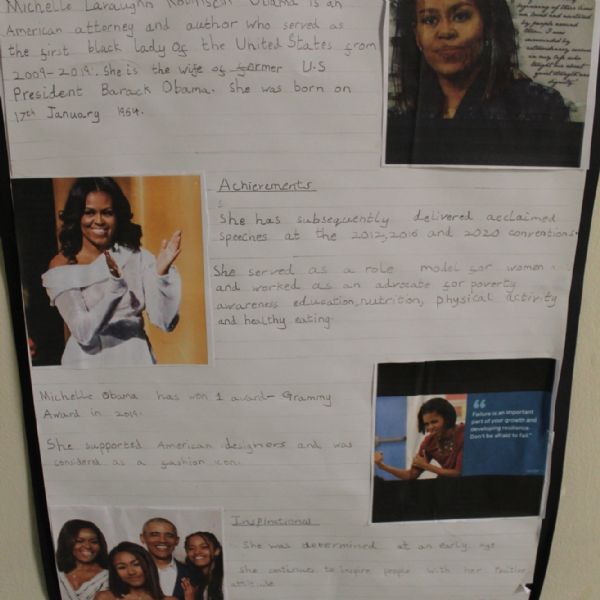 Michelle Lavaughn Robinson Obama is an
American attorney and author who served as
the first black lady of the United States from
2009-2019. She is the wife of former U.S
President Barack Obama. She was born on
17th January 1964.
Achievements
She has subsequently delivered acclaimed
speeches at the 2012, 2016 and 2020 conventions.
She served as a role model for women
and worked as an advocate for poverty
awareness education, nutrition, physical activity
and healthy eating.
Michelle Obama has won 1 award- Grammy
Award in 2019.
She supported American designers and was
considered as a fashion icon.
Failure is an important
part of your growth and
developing resilience.
Don't be afraid to fail."
Inspirational
She was determined at an early age
She continues to inspire people with her positive
attitude